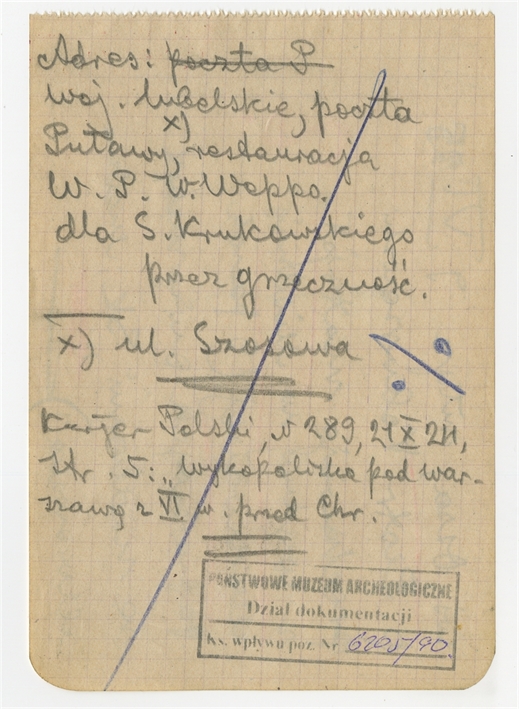 Adres: poczta P
woj. lubelskie, poczta
x)
Puławy, restauracja
W. P. W. Weppo.
dla S. Krukowskiego
przez grzeczność.
x) ul. Szosowa
Kurjer Polski, № 289, 21 X 24,
str. 5: „wykopaliska pod War-
szawą z VI w. przed Chr.
PAŃSTWOWE MUZEUM ARCHEOLOGICZNE
Dział dokumentacji
Ks. wpływu poz. Nr 6205/90